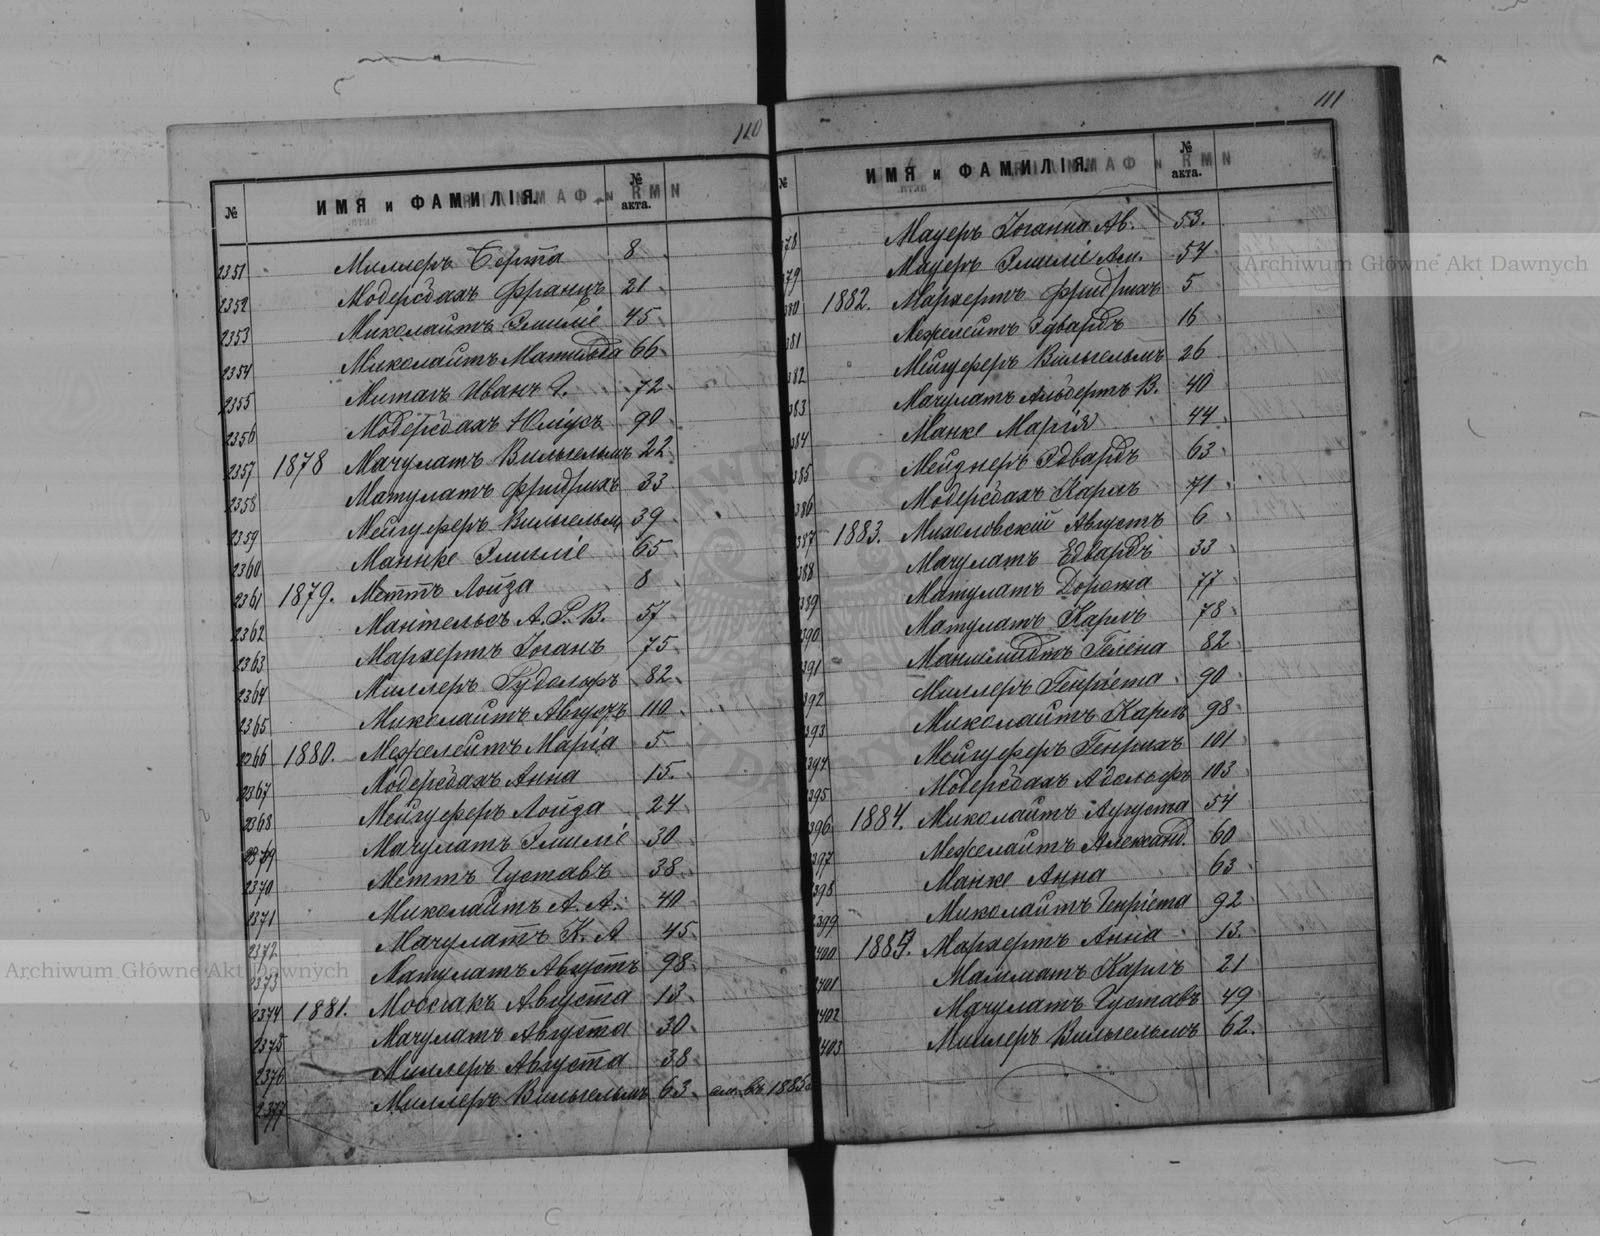 110
№ ИМЯ и ФАМИЛІЯ. № акта.
2351 Миллеръ Берта 8
2352 Модерсбахъ Францъ 21
2353 Миколайтъ Эмиліе 45
2354 Миколайтъ Матильда 66
2355 Митагъ Иванъ Г. 72
2356 Модерсбахъ Юліусъ 90
2357 1878 Мачулатъ Вильгельмъ 22
2358 Матулатъ Фридрихъ 33
2359 Мейгуферъ Вильгельм 39
2360 Манке Эмиліе 65
2361 1879. Меттъ Лоуза 8
2362 Мантельсъ А. Р. В. 57
2363 Мархертъ Іоганъ 75
2364 Миллеръ Рудольфъ 82
2365 Миколайтъ Августъ 110
2366 1880. Межелейтъ Марія 5
2367 Модерсбахъ Анна 15.
2368 Мейгуферъ Лоуза 24
Мачулатъ Эмиліе 30
2370 Меттъ Густавъ 38
2371 Миколайтъ А. А. 40
2372 Мачулатъ К. А 45
2373 Матулатъ Августъ 98
2374 1881. Моссакъ Августа 13
2375 Мачулатъ Августа 30
2376 Миллеръ Августа 38
2377 Миллеръ Вильгельмъ 63 см. въ 1885
111
№ ИМЯ и ФАМИЛІЯ. № акта.
78 Мауеръ Іоганна Ав. 53.
79 Мауеръ Эмиліе Ам. 54
380 1882. Мархертъ Фридрихъ 5
381 Межелейтъ Эдвардъ 16
382 Мейгуферъ Вильгельмъ 26
383 Мачулатъ Альбертъ В. 40
384 Манке Марія 44
385 Мейднеръ Эдвардъ 63
386 Модерсбахъ Карлъ 71
387 1883. Михеловскій Августъ 6
388 Мачулатъ Едвардъ 33
389 Матулатъ Дорота 77
390 Матулатъ Карлъ 78
391 Манишмидтъ Гелена 82
392 Миллеръ Генріета 90
393 Миколайтъ Карлъ 98
394 Мейгуферъ Генрихъ 101
395 Модерсбахъ Адольфъ 103
396 1884. Миколайтъ Аугуста 54
397 Межелайтъ Александ. 60
398 Манке Анна 63
399 Миколайтъ Генріета 92
400 Мархертъ Анна 13.
401 Малиматъ Карлъ 21
402 Мачулатъ Густавъ 49
403 Миллеръ Вильгельмъ 62.
Archiwum Główne Akt Dawnych
Archiwum Główne Akt Dawnych